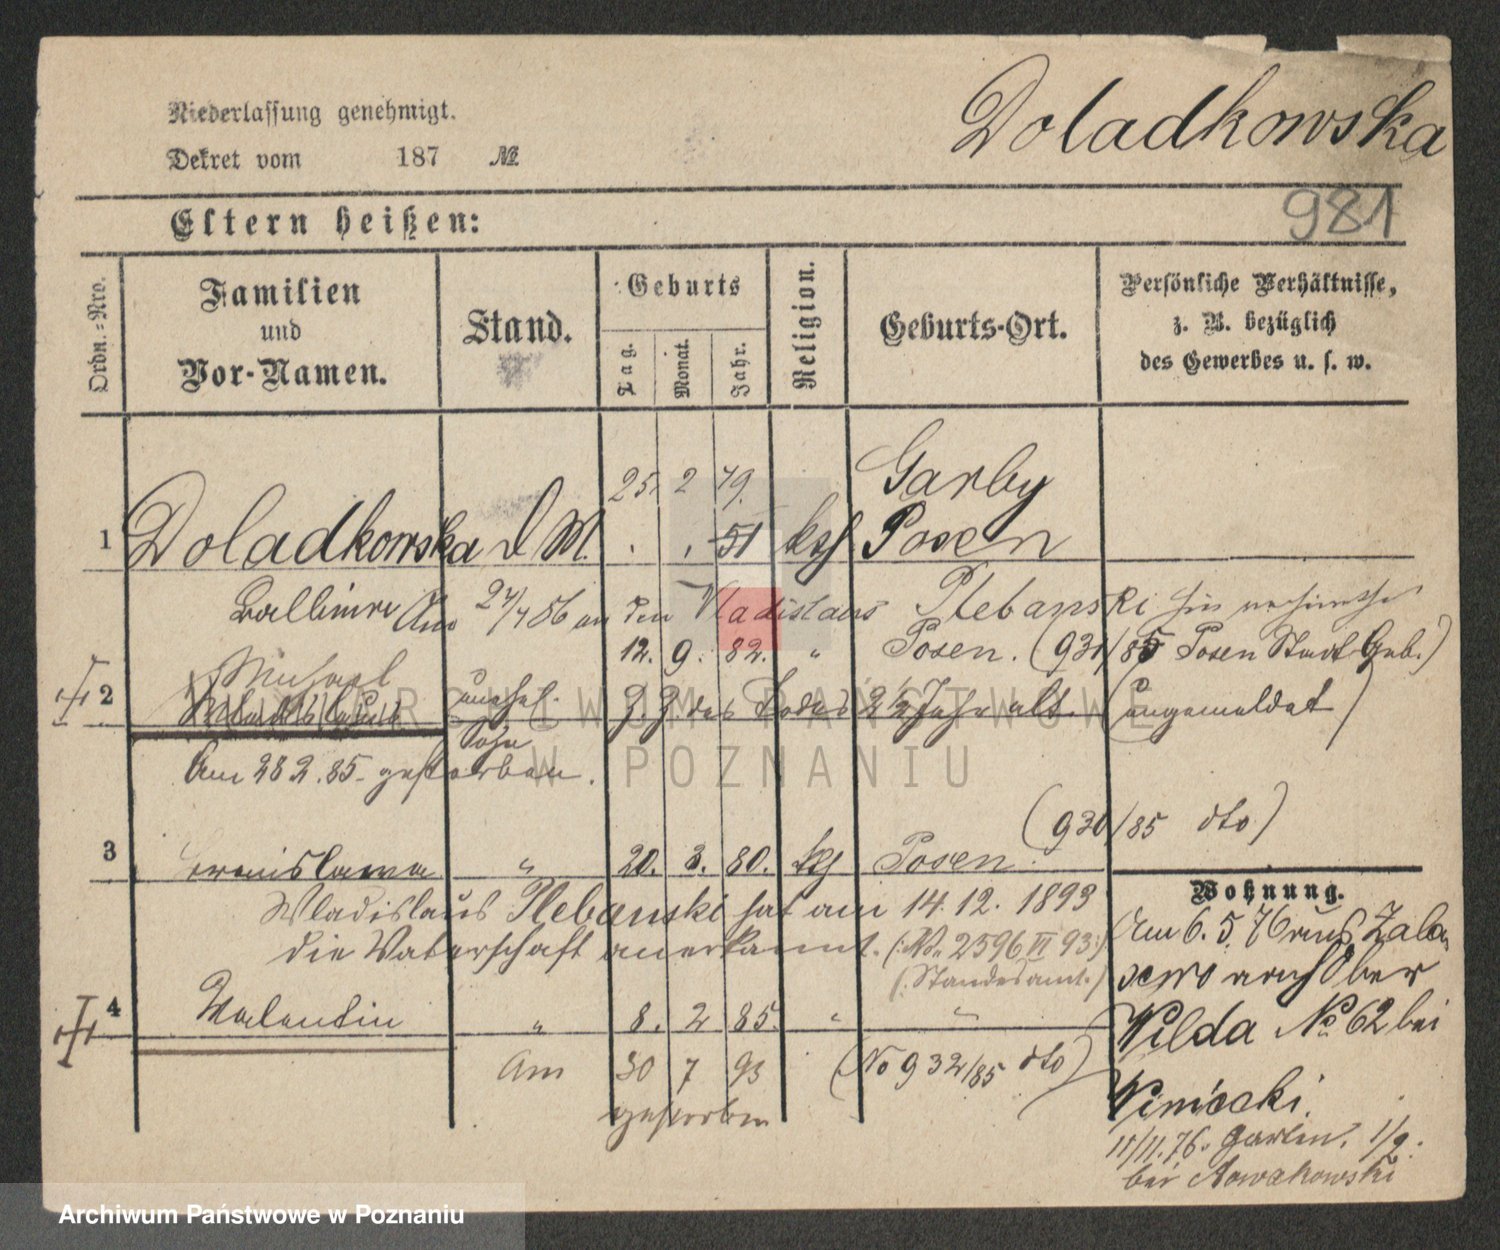 Niederlassung genehmigt.
Dekret vom 187 №
Doladkowska
981
Eltern heißen:
Ordn.=Nro.
Familien
und
Vor-Namen.
Stand.
Geburts
Tag.
Monat.
Jahr.
Religion.
Geburts-Ort.
Persönliche Verhältnisse,
z. B. bezüglich
des Gewerbes u. s. w.
25. 2 79. Garby
1 Doladkowska d M. . . 51 kth Posen
Am 24/4 86 an den Wladislaus Plebanski
12. 9. 82. " Posen. (931/85 Posen Stadt Geb.)
2 Michael unehel. des Todes 2 1/2 Jahr alt. (angemeldet)
Wladislaus
Sohn
Am 28 2. 85. gestorben.
(930/85 dto)
3 " 20. 3. 80. kth Posen.
Wladislaus Plebanski hat am 14. 12. 1893
die Vaterschaft anerkannt. (: No. 2596 VI 93:)
(: Standesamt.)
4 Valentin " 8. 2 85. " "
Am 30 7 93 (No 932/85 dto)
gestorben
Wohnung.
Am 6. 5. 76 aus Zala-
sewo nach Ober
Wilda No 62 bei
Winiecki.
11/11. 76.
bei Nowakowski
ARCHIWUM PAŃSTWOWE
W POZNANIU
Archiwum Państwowe w Poznaniu